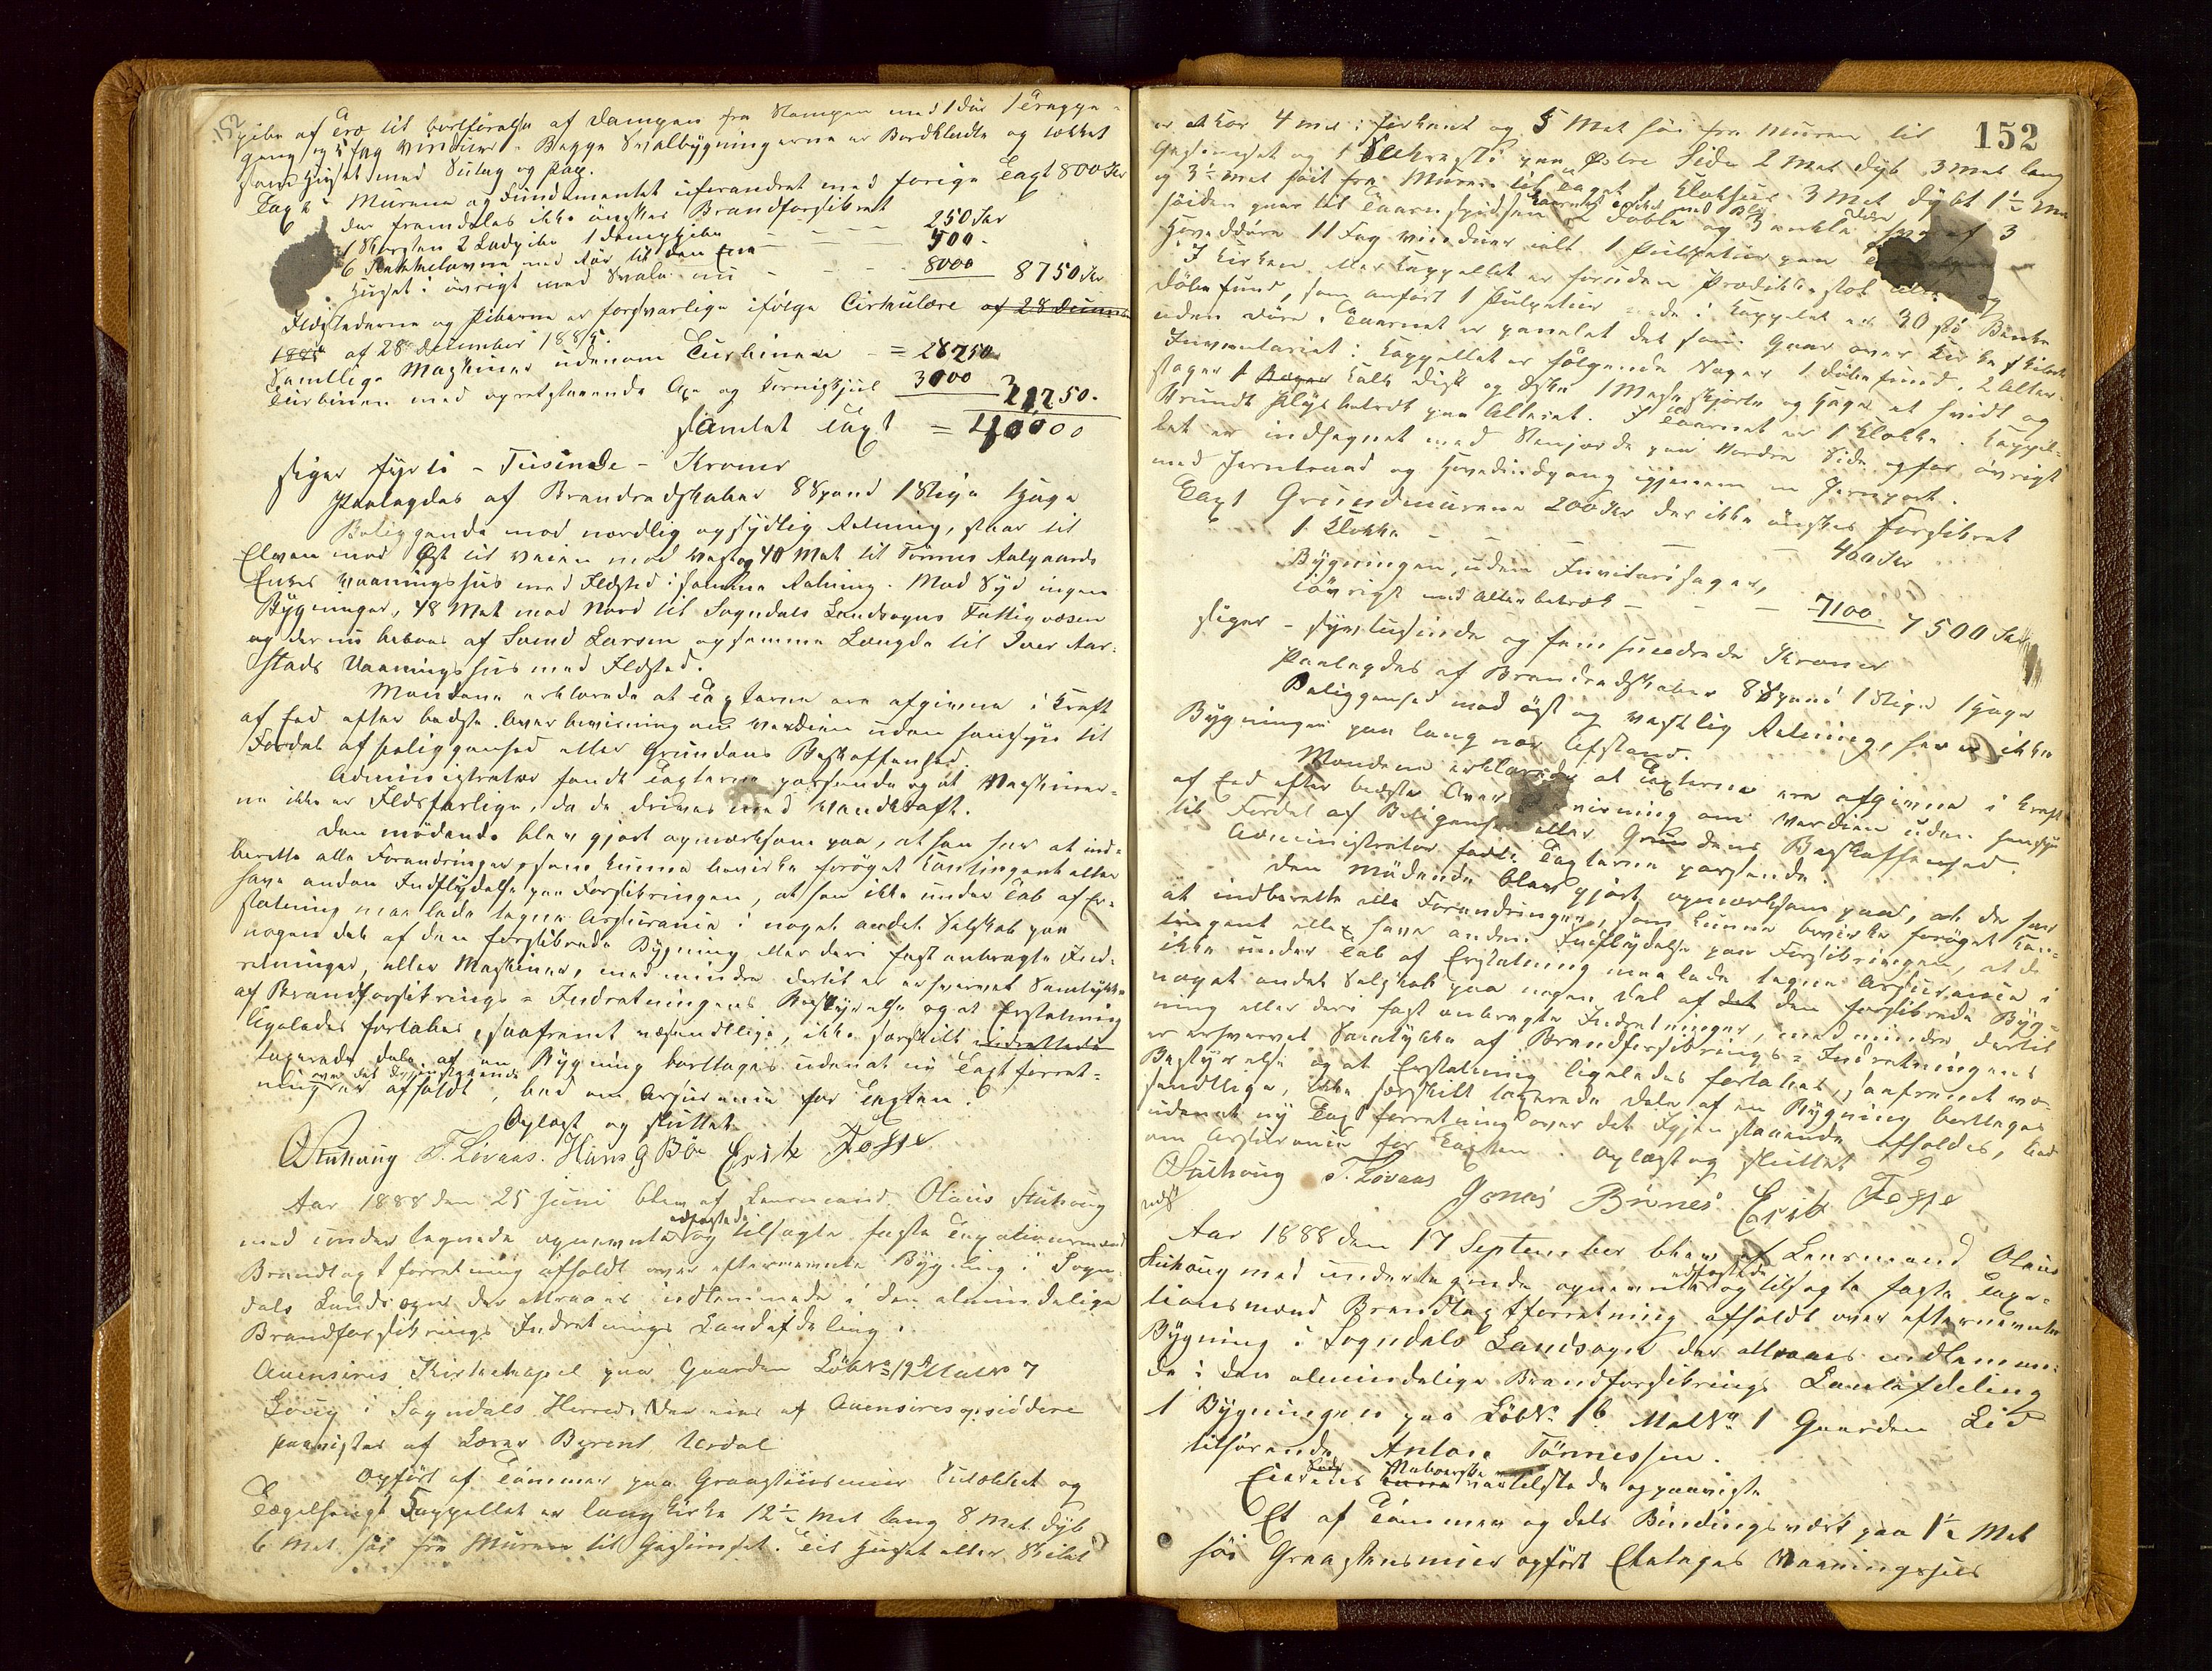 152
gibe af Træ til bortførelse af dampen fra Stampen med 1 dør 1 Trappe-
gang og 5 fag Vinduer. Begge Svalbygningerne er Bordklædte og tækket
som Huset med Sutag og
Taxt: Murene og Fundamentet uforandret med forige Taxt 800 Kr
der fremdeles ikke ønskes Brandforsikret
1 Skorsten 2 Ladpibe 1 damppibe - - - 250 Kr
6 Kakkelovne med Rør - - - 500 -
Huset i øvrigt med Svale - - - 8000 8750 Kr
Ildstederne og Piberne er forsvarlige ifølge Cirkulære af 28 December
1885 af 28 December 1885.
Samtlige Maskiner udenom Turbinen = 28250
Turbinen med opretstaaende Axe og 3000 31250.
samlet Taxt = 40000
siger fyrti - Tusinde - Kroner
Paalagdes af Brandredskaber 8 Spand 1 Stige 1 Hage
Beliggende mod nordlig og sydlig Retning, staar til
Elven mod Øst til Veien mod Vest og 40 Met til Tønnes Aalgaards
Enkes Vaaningshus med Ildsted i samme Retning. Mod Syd ingen
Bygninger, 48 Met mod Nord til Sogndals Landsogns Fattigvæsen
og der nu beboes af Svend Larsen og samme Længde til Iver Aar-
stads Vaaningshus med Ildsted.
Mændene erklærede at Taxterne ere afgivne i Kraft
af Eed efter bedste Overbevisning om Værdien uden hensyn til
Fordel af beliggenhed eller Grundens Beskaffenhed.
Administrator fandt Taxterne passende og at Maskiner-
ne ikke er Ildsfarlige, da de drives med Vandkraft.
Den mødende blev gjort opmærksom paa, at han har at ind-
berette alle Forandringer, som kunne bevirke forøget Contingent eller
have anden Indflydelse paa Forsikringen, at han ikke under Tab af Er-
statning maa lade tegne Assurance i noget andet Selskab paa
nogen del af den forsikrede Bygning eller deri fast anbragte Ind-
retninger, eller Maskiner, med mindre dertil er erhvervet Samtykke
af Brandforsikrings-Indretningens Bestyrelse og at Erstatning
ligeledes fortabes, saafremt væsentlige, ikke særskilt indrettede
taxerede dele af en Bygning borttages uden at ny Taxtforret-
ning over det Igjenstaaende afholdt, bad om Assurance for Taxten.
Oplæst og sluttet
OStuhoug T. Løvaas. Hans G Bøe Erik Fosse
Aar 1888 den 25 Juni blev af Lensmand Olaus Stuhoug
med undertegnede opnævnte edfæstede og tilsagte faste Taxationsmænd
Brandtaxtforretning afholdt over efternævnte Bygning i Sogn-
dals Landsogn der attraaes indlemmede i den almindelige
Brandforsikrings Indretnings Landafdeling.
Aaensires Kirkekapel paa Gaarden LøbNo 19 a MatNo 7
Houg i Sogndals Herred. Der eies af Aaensires opsiddere
paavistes af Lærer Berent Urdal
Opført af Tømmer paa Graastensmur Kledt og
Tegelhængt Kappellet er langkirke 12½ Met lang 8 Met dyb
6 Met høi fra Muren til Gesimset.
152
er et Kor 4 Met i firkant og 5 Met høi fra Muren til
Gesimset og 1 Sakresti paa Østre Side 2 Met dyb 3 Met lang
og 3½ Met høit fra Muren til Taget 1 Klokhus 3 Met dybt 1½ Met
høiden gaar til Taarnspidsen 2 doble og 3 enkle døre
Hoveddøre 11 Fag vinduer ialt. 1 Pulpetur paa
I Kirken eller Kappellet er foruden Prædikestol Alter og
døbefund, som anført 1 Pulpetur i Kappelet er 30 st Benke
uden døre. Taarnet er panelet det som gaar over Kirke
Inventariet i Kappellet er følgende Nager 1 døbefund, 2 Alter-
stager 1 Kalk Disk og Æske 1 Messeskjorte og Hagel et hvidt og
Brundt Pløsbetrek paa Alteret. I Taarnet er 1 Klokke. Kappel-
let er indhegnet med Stengjerde paa Nordre Side og for øvrigt
med Jerntraad og Hovedindgang igjennem en Jernport.
Taxt Grundmurene 200 Kr der ikke ønskes forsikret
1 Klokke - - - 400 Kr
Bygningen, uden Inventarisager,
iøvrigt med Alterbetrek - - - 7100 7500 Kr
siger - syvtusinde og femhundrede Kroner
Paalagdes af Brandredskaber 8 Spand 1 Stige 1 Hage
Beliggenhed mod øst og vestlig Retning, har ikke
Bygninger paa langt nær Afstand.
Mændene erklærede at Taxterne ere afgivne i Kraft
af Eed efter bedste Overbevisning om Værdien uden hensyn
til Fordel af Beligenhed eller Grundens Beskaffenhed.
Administrator fandt Taxterne passende.
Den mødende blev gjort opmærksom paa, at de har
at indberette alle Forandringer, som kunne bevirke forøget Con-
tingent eller have anden Indflydelse paa Forsikringen, at de
ikke under Tab af Erstatning maa lade tegne Assurance i
noget andet Selskab paa nogen del af det den forsikrede Byg-
ning eller deri fast anbragte Indretninger, med mindre dertil
er erhvervet Samtykke af Brandforsikrings-Indretningens
Bestyrelse og at Erstatning ligeledes fortabes, saafremt væ-
sentlige, ikke særskilt taxerede dele af en Bygning borttages
uden at ny Taxtforretning over det Igjenstaaende afholdes, bad
om Assurance for Taxten. Oplæst og sluttet
OStuhoug T. Løvaas Jonas Brønes Erik Fosse
Aar 1888 den 17 September blev af Lensmand Olaus
Stuhoug med undertegnede opnævnte edfæstede og tilsagte faste Taxa-
tionsmænd Brandtaxtforretning afholdt over efternævnte
Bygning i Sogndals Landsogn der attraaes indlemme-
de i den almindelige Brandforsikrings Landafdeling
1 Bygningen paa LøbNo 16 MatNo 1 Gaarden Lid
tilhørende Antone Tønnessen.
Eierens tilstede og paaviste
Et af Tømmer og dels Bindingsværk paa 1½ Met
høi Graastensmur opført Etatages Vaaningshus